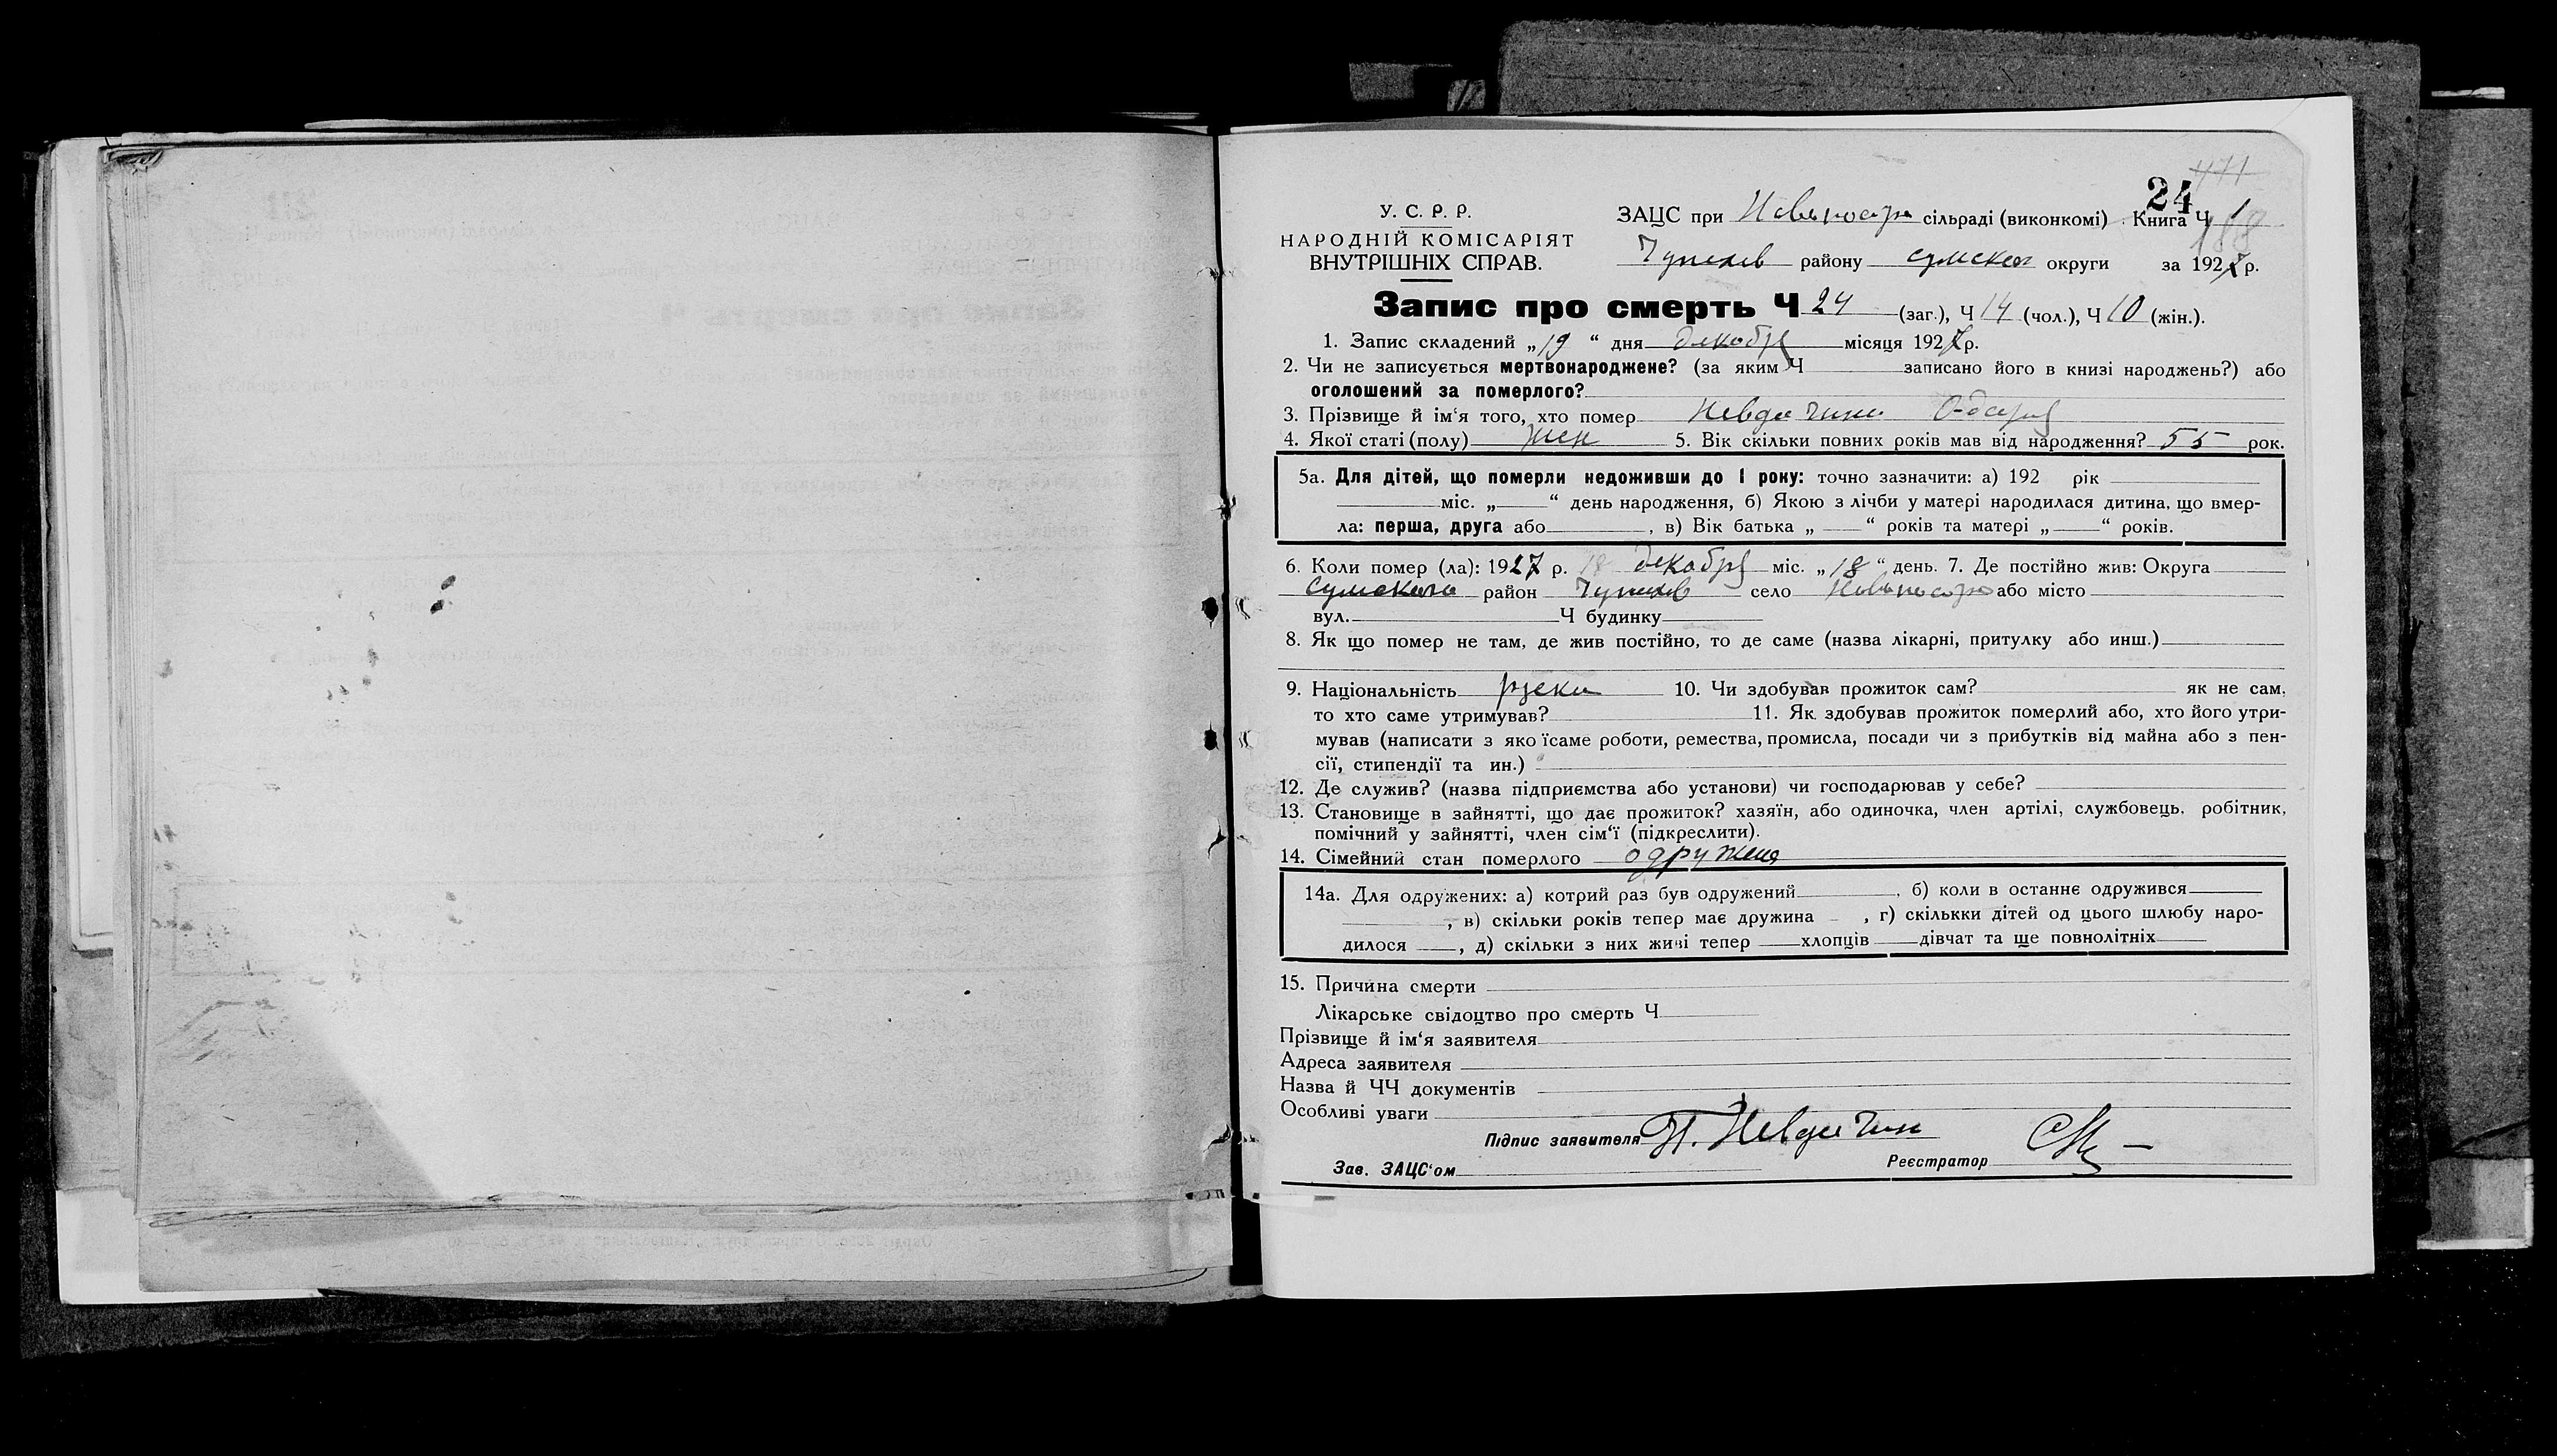 471
24
У. С. Р. Р.
НАРОДНІЙ КОМІСАРІЯТ
ВНУТРІШНІХ СПРАВ.
ЗАЦС при сільраді (виконкомі) Книга Ч 1
188
району сумского округи за 1927 р.
Запис про смерть Ч 24 (заг.), Ч 14 (чол.), Ч 10 (жін.).
1. Запис складений „ 19 “ дня декабря місяця 1927 р.
2. Чи не записується мертвонароджене? (за яким Ч записано його в книзі народжень?) або
оголошений за померлого?
3. Прізвище й ім‘я того, хто помер Невдачина Одаря
4. Якої статі (полу) жен 5. Вік скільки повних років мав від народження? 55 рок.
5а. Для дітей, що померли недоживши до 1 року: точно зазначити: а) 192 рік
міс. „ “ день народження, б) Якою з лічби у матері народилася дитина, що вмер-
ла: перша, друга або , в) Вік батька „ “ років та матері „ “ років.
6. Коли помер (ла): 1927 р. 18 декабря міс. „ 18 “ день. 7. Де постійно жив: Округа
Сумского район село або місто
вул. Ч будинку
8. Як що помер не там, де жив постійно, то де саме (назва лікарні, притулку або инш.)
9. Національність руска 10. Чи здобував прожиток сам? як не сам,
то хто саме утримував? 11. Як здобував прожиток померлий або, хто його утри-
мував (написати з яко їсаме роботи, ремества, промисла, посади чи з прибутків від майна або з пен-
сії, стипендії та ин.)
12. Де служив? (назва підприємства або установи) чи господарював у себе?
13. Становище в зайнятті, що дає прожиток? хазяїн, або одиночка, член артілі, службовець, робітник,
помічний у зайнятті, член сім‘ї (підкреслити).
14. Сімейний стан померлого одружена
14а. Для одружених: а) котрий раз був одружений , б) коли в останнє одружився
, в) скільки років тепер має дружина , г) скількки дітей од цього шлюбу наро-
дилося , д) скільки з них живі тепер хлопців дівчат та ще повнолітніх
15. Причина смерти
Лікарське свідоцтво про смерть Ч
Прізвище й ім‘я заявителя
Адреса заявителя
Назва й ЧЧ документів
Особливі уваги
Підпис заявителя П. Невдачин
Зав. ЗАЦС‘ом Реєстратор